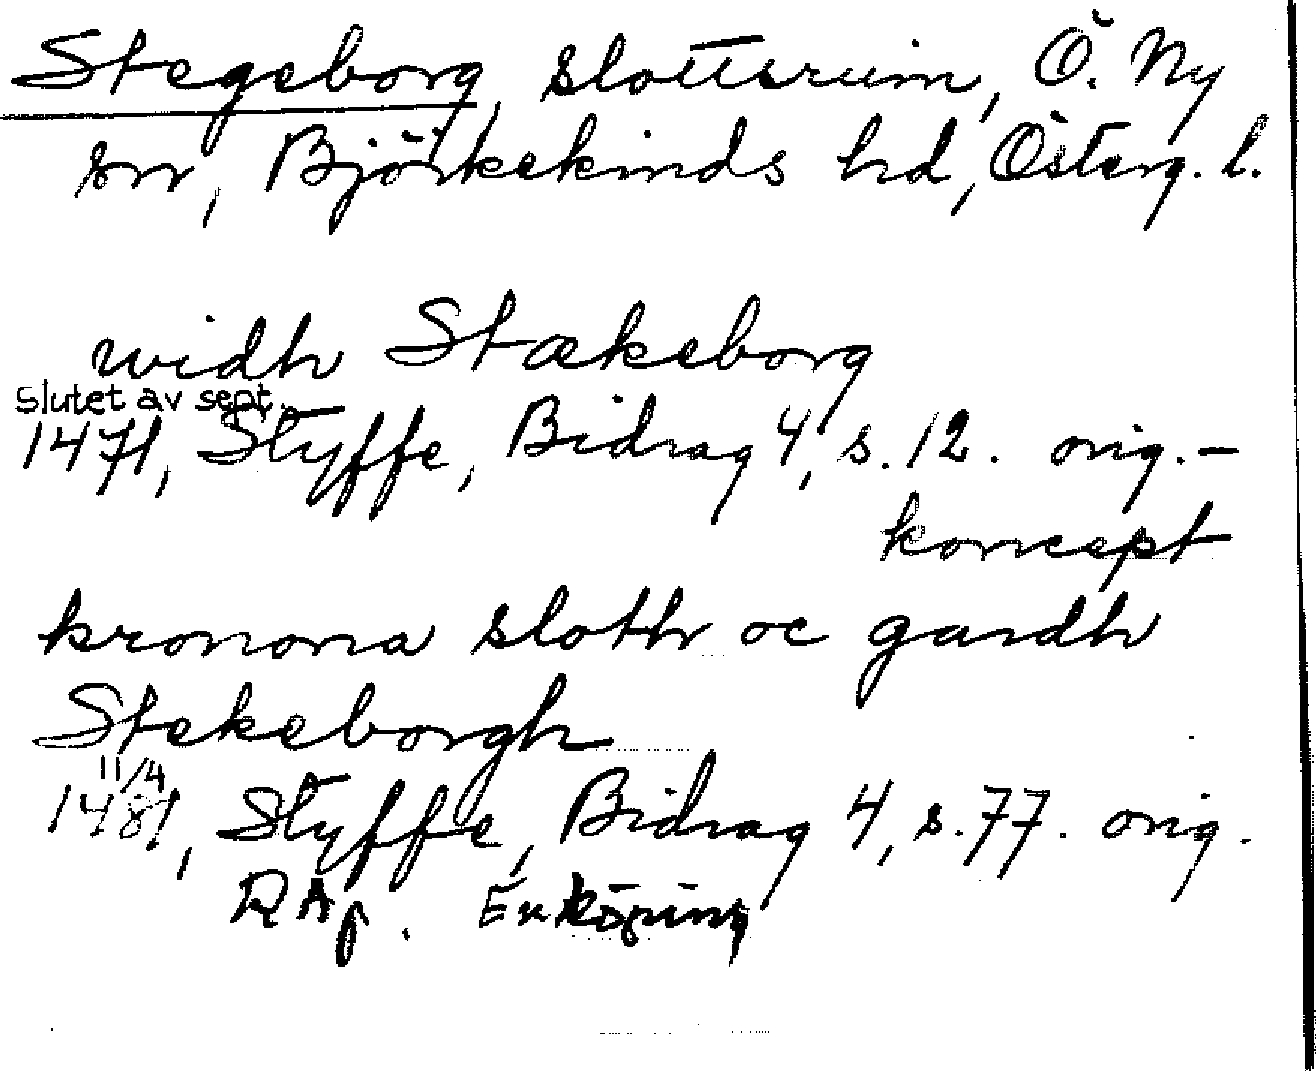 Stegeborg, slottsruin, Ö. Ny
sn, Björkekinds hd, Österg. l.
widh Stækeborg
Slutet av sept.
1471, Styffe, Bidrag 4, s. 12. orig.-
koncept
kronona sloth oc gardh
Stekeborgh
11/4
1481, Styffe, Bidrag 4, s. 77. orig.
RAp. Enköping